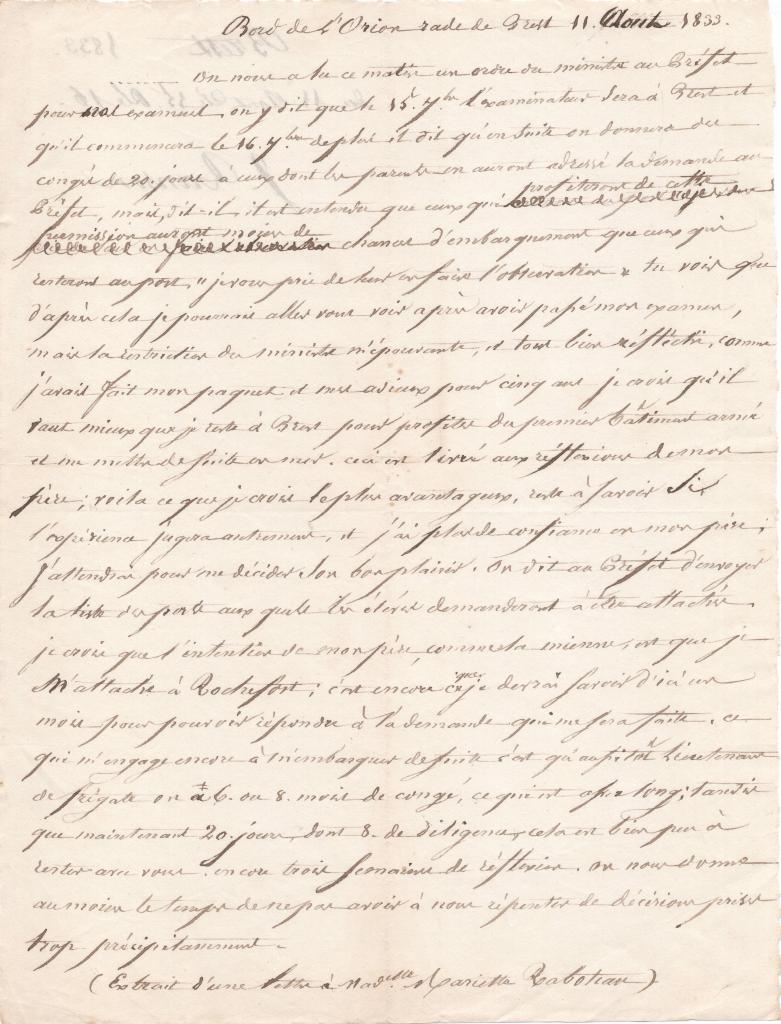 Bord de L'Orion rade de Brest 11 Aout 1833.
......... On nous a lu ce matin un ordre du ministre au Préfet
pour nos examens, on y dit que le 15. 7bre l'examinateur sera à Brest et
qu'il commencera le 16. 7bre de plus il dit qu'ensuite on donnera des
congés de 20. jours à ceux dont les parents en auront adressé la demande au
Préfet, mais, dit-il, il est entendu que ceux qui profiteront de cette
permission auront moins de chance d'embarquement que ceux qui
resteront au port, " je vous prie de leur en faire l'observation " tu vois que
d'après cela je pourrais aller vous voir après avoir passé mon examen,
mais la restriction du ministre m'épouvante, et tout bien réfléchi, comme
j'avais fait mon paquet et mes adieux pour cinq ans je crois qu'il
vaut mieux que je reste à Brest pour profiter du premier bâtiment armé
et me mettre de suite en mer. ceci est livré aux réflexions de mon
père; voila ce que je crois le plus avantageux, reste à savoir si
l'expérience jugera autrement, et j'ai plus de confiance en mon père;
j'attendrai pour me décider son bon plaisir. On dit au Préfet d'envoyer
la liste des ports aux quels les élèves demanderont à être attachés.
je crois que l'intention de mon père, comme la mienne, est que je
m'attache à Rochefort; c'est encore ce que je devrai savoir d'ici à un
mois pour pouvoir répondre à la demande qui me sera faite. ce
qui m'engage encore à m'embarquer de suite c'est qu'aussitôt Lieutenant
de frégate on a 6. ou 8. mois de congé, ce qui est assez long; tandis
que maintenant 20. jours, dont 8. de diligence, cela est bien peu à
rester avec vous. encore trois semaines de réflexion. on nous donne
au moins le temps de ne pas avoir à nous repentir de décisions prises
trop précipitamment.
(Extrait d'une lettre à Madelle Mariette Raboteau)